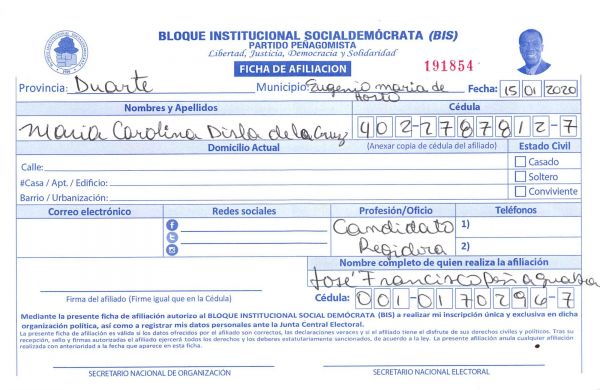 BLOQUE INSTITUCIONAL SOCIALDEMÓCRATA (BIS)
PARTIDO PEÑAGOMISTA
Libertad, Justicia, Democracia y Solidaridad
FICHA DE AFILIACION
191854
Provincia: Duarte Municipio: Eugenio maria de Hosto Fecha: 15 01 2020
Nombres y Apellidos Cédula
Maria Carolina Disla de la Cruz 402-2787812-7
Domicilio Actual (Anexar copia de cédula del afiliado) Estado Civil
Calle: Casado
#Casa / Apt. / Edificio: Soltero
Barrio / Urbanización: Conviviente
Correo electrónico Redes sociales Profesión/Oficio Teléfonos
Candidato 1)
Regidora 2)
Nombre completo de quien realiza la afiliación
José Francisco Peña
Firma del afiliado (Firme igual que en la Cédula) Cédula: 001-0170296-7
Mediante la presente ficha de afiliación autorizo al BLOQUE INSTITUCIONAL SOCIAL DEMÓCRATA (BIS) a realizar mi inscripción única y exclusiva en dicha
organización política, así como a registrar mis datos personales ante la Junta Central Electoral.
La presente ficha de afiliación es válida si los datos ofrecidos por el afiliado son correctos, las declaraciones veraces y si el afiliado tiene el disfrute de sus derechos civiles y políticos. Tras su
recepción, sello y firmas autorizadas el afiliado ejercerá todos los derechos y los deberes estatutariamente sancionados, de acuerdo a la ley. La presente afiliación anula cualquier afiliación
realizada con anterioridad a la fecha que aparece en esta ficha.
SECRETARIO NACIONAL DE ORGANIZACIÓN SECRETARIO NACIONAL ELECTORAL